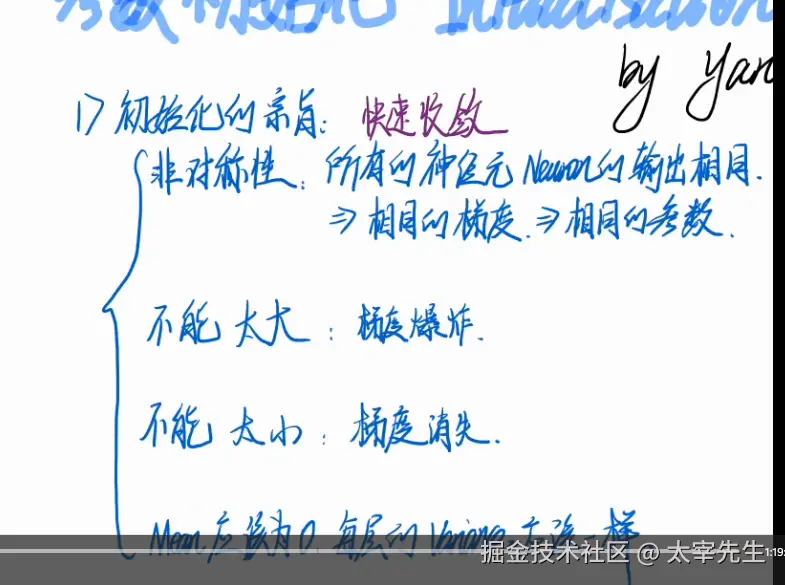 参数初始化 Initialisation
by Yan
1) 初始化的宗旨: 快速收敛
非对称性: 所有的神经元 Neuron的输出相同.
⇒ 相同的梯度. ⇒ 相同的参数.
不能 太大 : 梯度爆炸.
不能 太小 : 梯度消失.
Mean 应该为0. 每层的 Variance 应该一样
掘金技术社区 @ 太宰先生
1:19